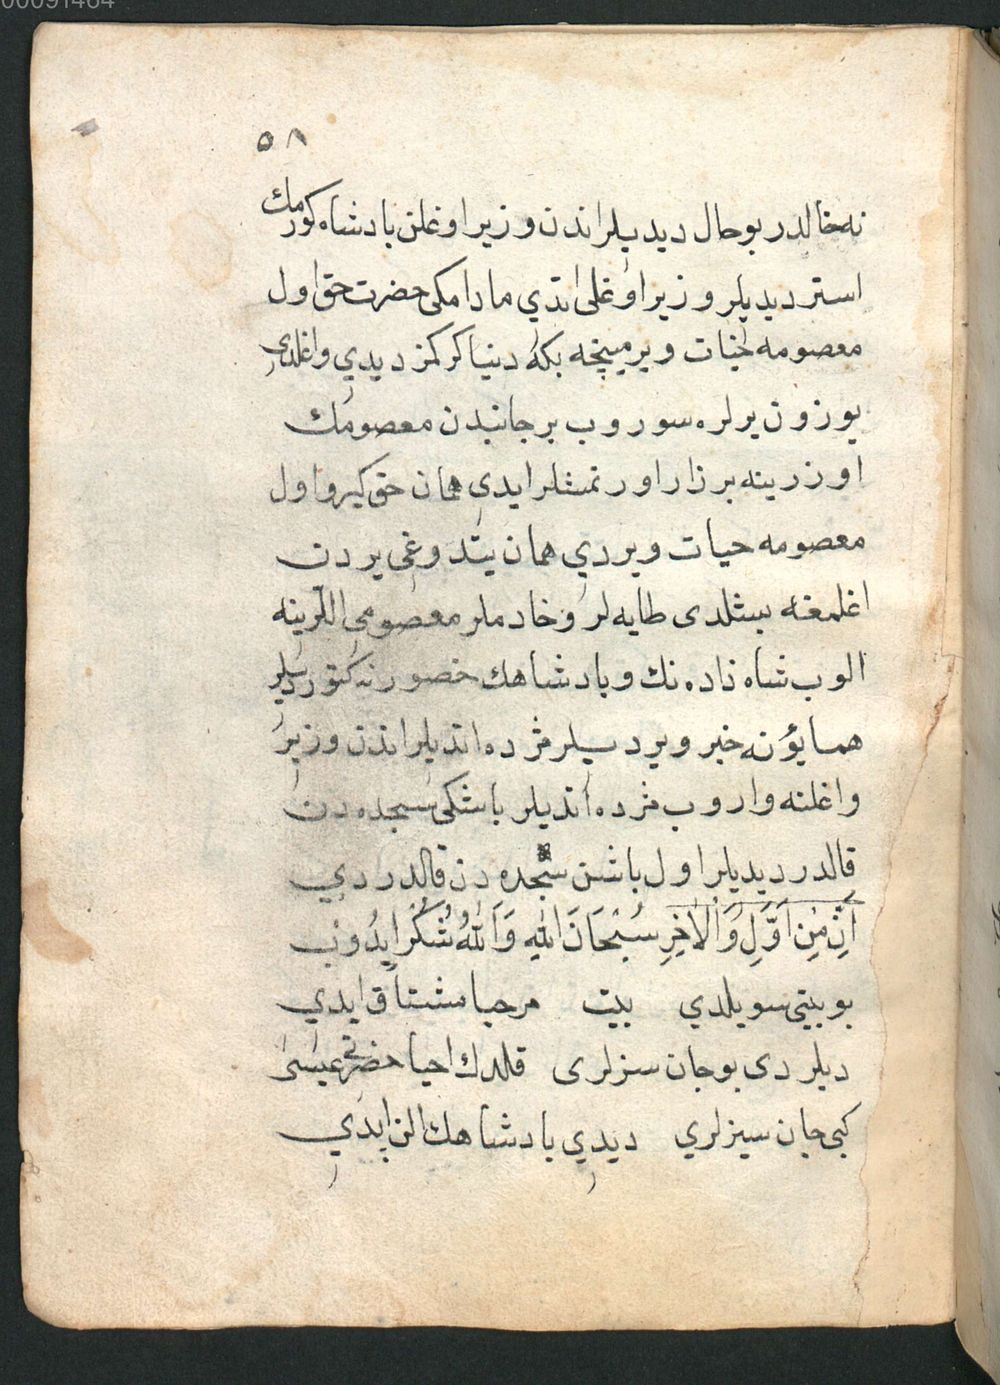 00091464
٥٨
نه خالدر بو حال ديديلر اندن وزير اوغلن پادشاه كورمك
استر ديديلر وزير اوغلى اتدي مادامكى حضرت حق اول
معصومه حيات ويرمينجه بكه دنيا كركمز ديدي واغلدى
يوزون يرلره سوروب بر جانبدن معصومك
اوزرينه بر زار اورتمشلر ايدى همان حق كيرو اول
معصومه حيات ويردي همان يتدوغى يردن
اغلمغه بشلدى طايه لر وخادملر معصومى اللرينه
الوب شاه زاده نك وپادشاهك حضورنه كتورديلر
همايونه خبر ويرديلر مژده اتديلر اندن وزير
واغلنه واروب مژده اتديلر باشكى سجده دن
قالدر ديديلر اول باشن سجده دن قالدردي
اَنِّ مِن اَوَّلِ وَالْاَخِرِ سُبْحَانَ الله وَالله شُكُر ايدُوب
بو بيتى سويلدي بيت مرحبا مشتاق ايدي
ديلردى بو جان سزلرى قلدك احيا حضرتى عيسى
كبى جان سيزلري ديدي پادشاهك الن ايدي